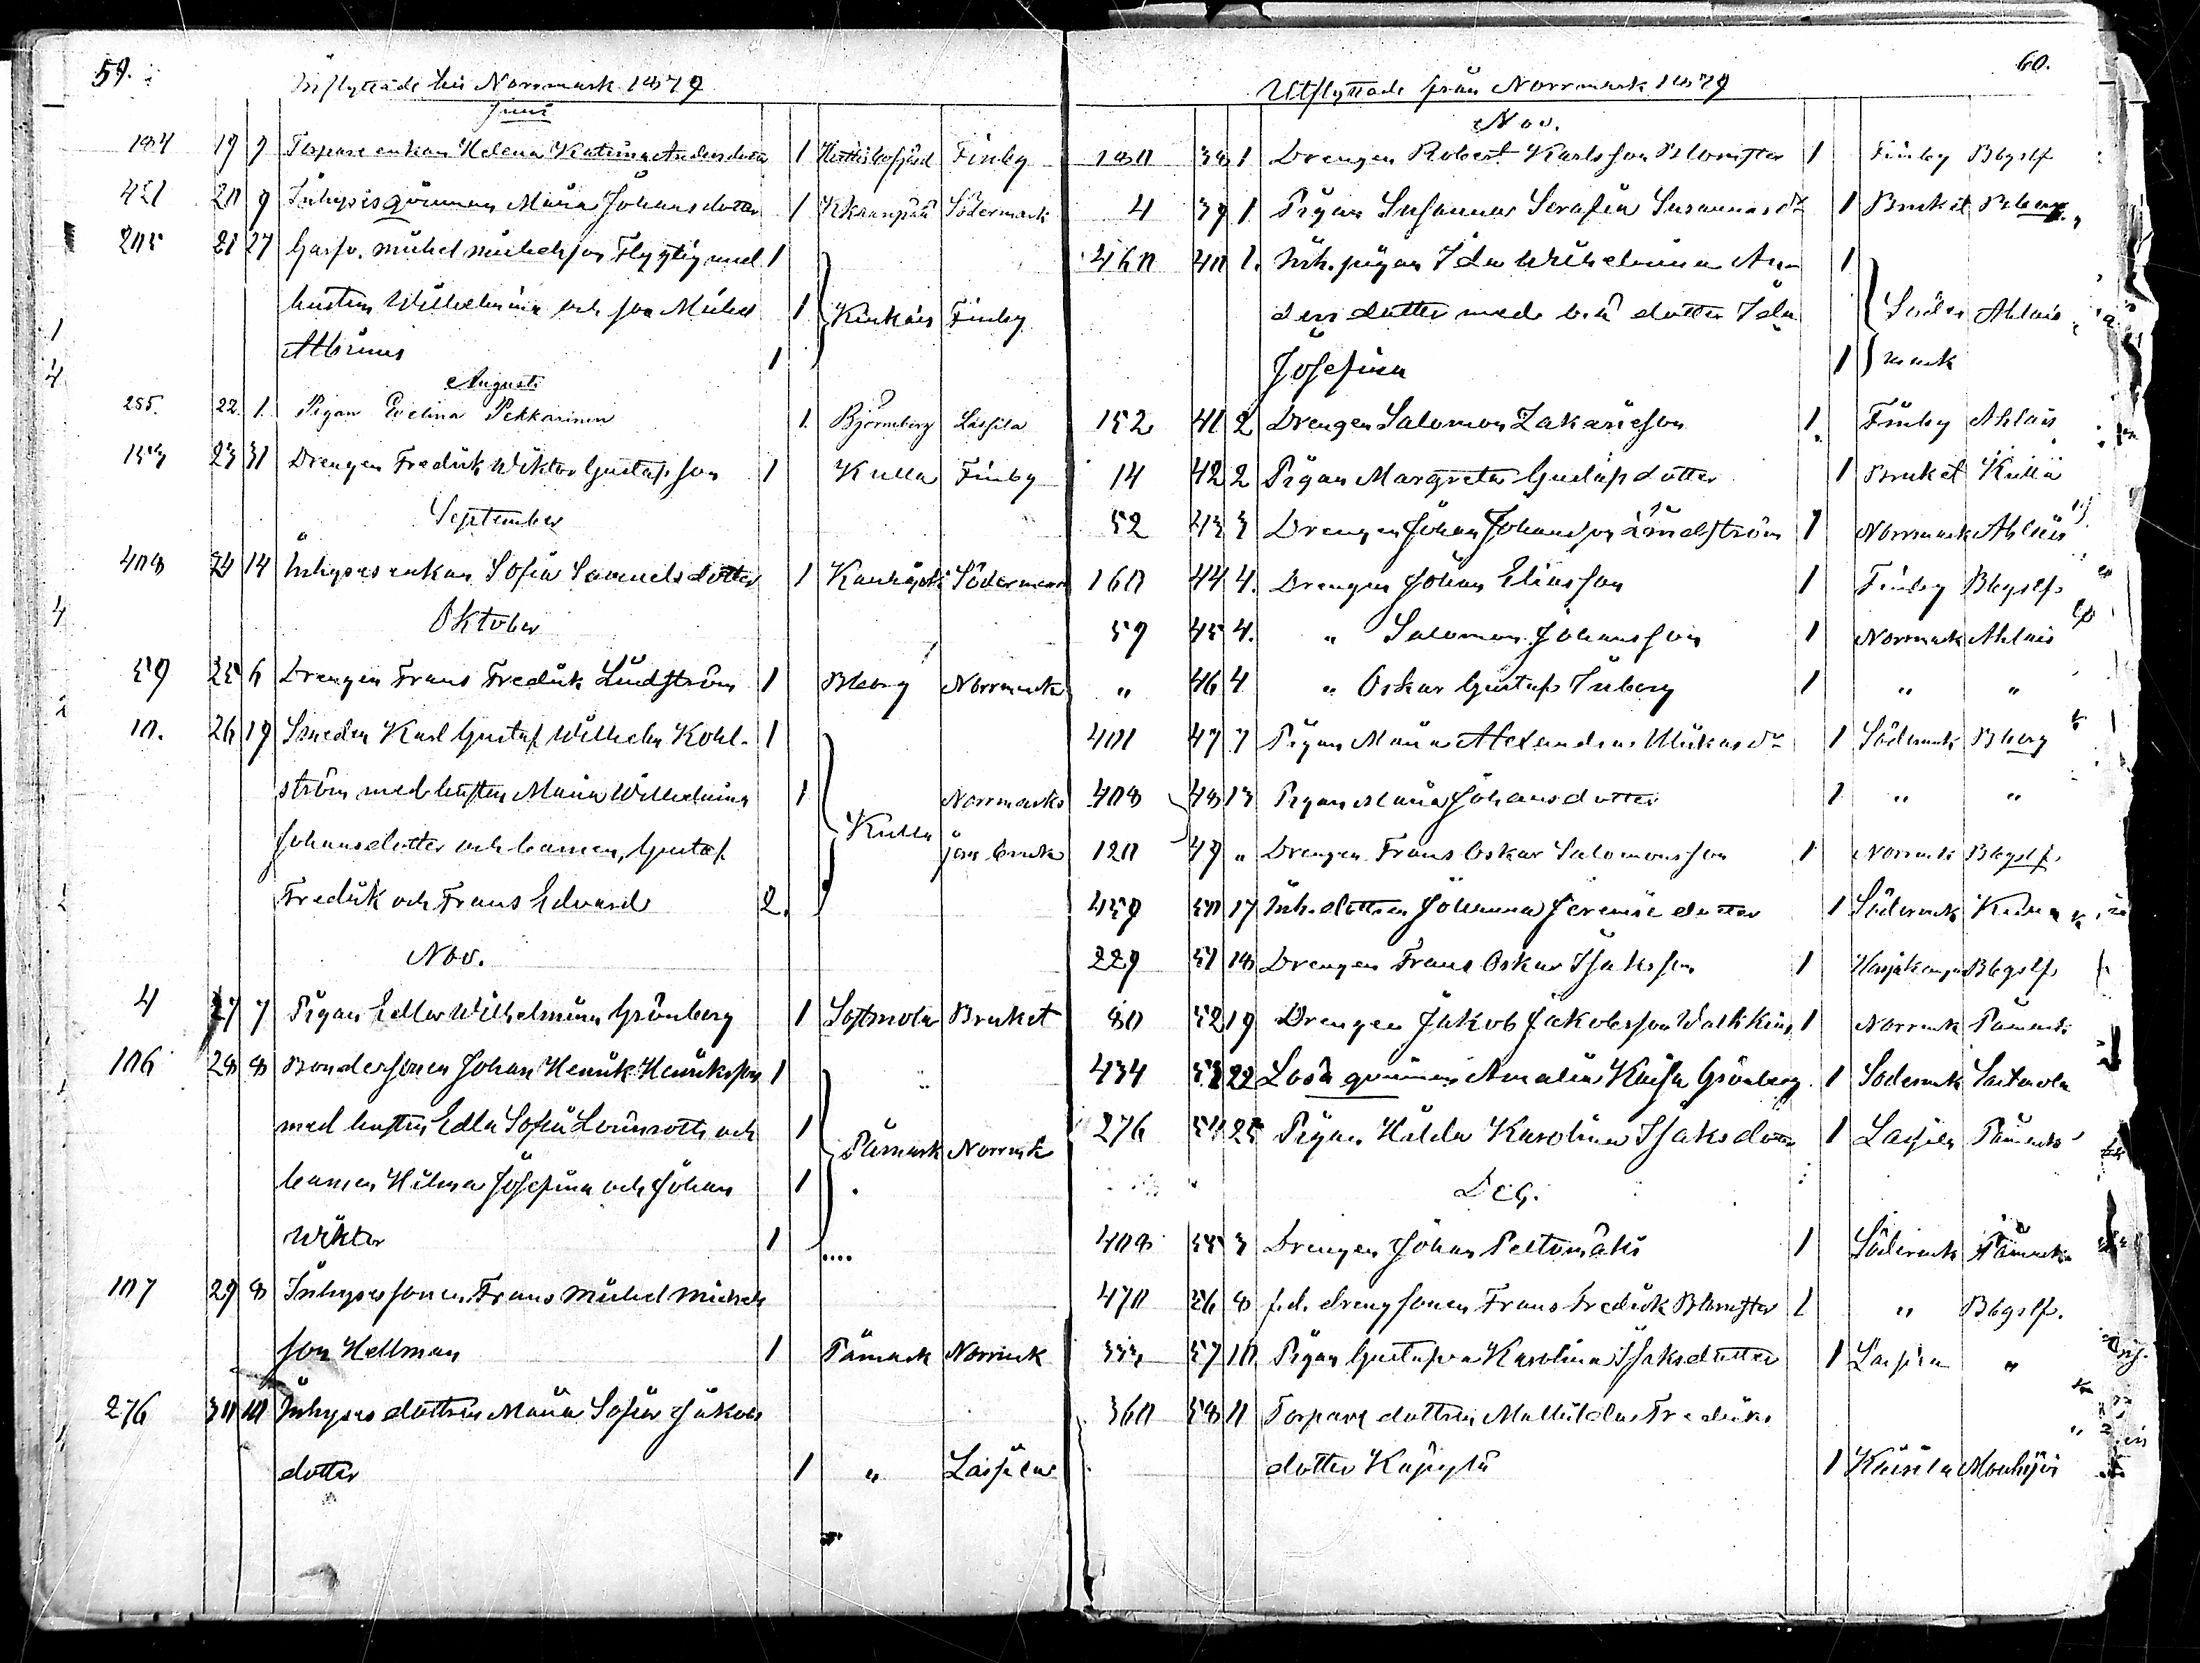 59.
Inflyttade till Norrmark 1879
Juni
184 19 9 Torpare enkan Helena Katrina Andersdotter 1 Finby
421 20 9 Inhysisqvinnan Maria Johansdotter 1 Södermark
205 21 27 Mickel Mickelsson Flygtig med 1
hustrun Wilhelmina och son Mickel 1 Kirkais Finby
Albinus 1
Augusti
255. 22. 1. Pigan Evelina Pekkarinen 1. Björneborg Lassila
153 23 31 Drengen Fredrik Wiktor Gustafsson 1 Kulla Finby
September
408 24 14 Inhyses enkan Sofia Samuelsdotter 1 Södermark
Oktober
59 25 6 Drengen Frans Fredrik Lindström 1 Bborg Norrmark
10. 26 19 Smeden Karl Gustaf Wilhelm Kohl- 1
ström med hustrun Maria Wilhelmina 1 Norrmarks
Johansdotter och barnen, Gustaf Kulla jern bruk
Fredrik och Frans Edvard 2.
Nov.
4 27 7 Pigan Edla Wilhelmina Grönberg 1 Sastmola Bruket
106 28 8 Bondesonen Johan Henrik Henriksson 1
med hustrun Edla Sofia Lönnroth och 1 Påmark Norrmk
barnen Hilma Josefina och Johan 1
Wiktor 1
107 29 8 Inhyses sonen Frans Mickel Mickels
son Hellman 1 Påmark Norrmk
276 30 10 Inhyses dottren Maria Sofia Jakobs
dotter 1 " Lassila
60.
Utflyttade från Norrmark 1879
Nov.
180 38 1 Drengen Robert Karlsson Blomster 1 Finby Bbgslf
4 39 1. Pigan Susanna Serafia Susannasdr 1 Bruket Bborg
460 40 1. Inh. pigan Ida Wilhelmina An- 1
dersdotter med o.ä. dotter Ida Söder Ahlais
Josefina 1 mark
152 41 2 Drengen Salomon Zakariesson 1. Finby Ahlais
14 42 2 Pigan Margreta Gustafsdotter 1 Bruket Kulla
52 43 3 Drengen Johan Johansson Lindström 1 Norrmark Ahlais
160 44 4. Drengen Johan Eliasson 1 Finby Bbgslfs
59 45 4. " Salomon Johansson 1 Norrmark Ahlais
" 46 4 " Oskar Gustaf Inberg 1 " "
401 47 7 Pigan Maria Alexandra Mickasdr 1 Södermk Bborg
408 48 13 Pigan Maria Johansdotter 1 " "
120 49 " Drengen Frans Oskar Salomonsson 1 Norrmk Bbgslf
459 50 17 Inh. dottren Johanna Jeremie dotter 1 Södermk
229 51 18 Drengen Frans Oskar Isaksson 1 Bbgslf
80 52 19 Drengen Jakob Jakobsson 1 Norrmk Påmark
434 53 22 Lösa qvinnan Amalia Kaisa Grönberg 1 Södermk Sastmola
276 54 25 Pigan Hilda Karolina Isaksdotter 1 Lassila Påmark
Dec.
408 55 3 Drengen Johan Peltomäki 1 Södermk Påmark
470 56 8 f.d. drengsonen Frans Fredrik Blomster 1 " Bbgslf.
333 57 10 Pigan Gustafva Karolina Isaksdotter 1 Lassila "
360 58 11 Torpare dottren Mathilda Fredriks
dotter Käpylä 1 Mouhijärvi